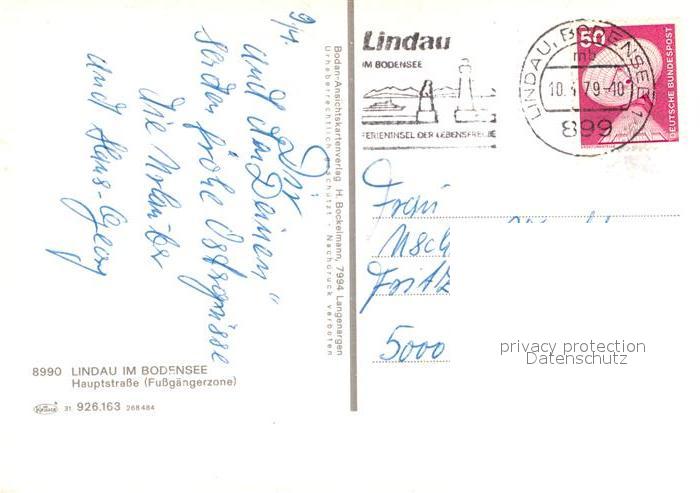 9/4.
Dir
und den Deinen"
senden frohe Ostergrüsse
die Urlauber
und Hans-Georg
Bodan-Ansichtskartenverlag H. Bockelmann, 7994 Langenargen
Urheberrechtlich geschützt · Nachdruck verboten
8990 LINDAU IM BODENSEE
Hauptstraße (Fußgängerzone)
Krüger 31 926.163 268484
Lindau
IM BODENSEE
FERIENINSEL DER LEBENSFREUDE
LINDAU, BODENSEE 1
mb
10. 4 79-10
899
50
DEUTSCHE BUNDESPOST
Frau
Fritz
5000
privacy protection
Datenschutz